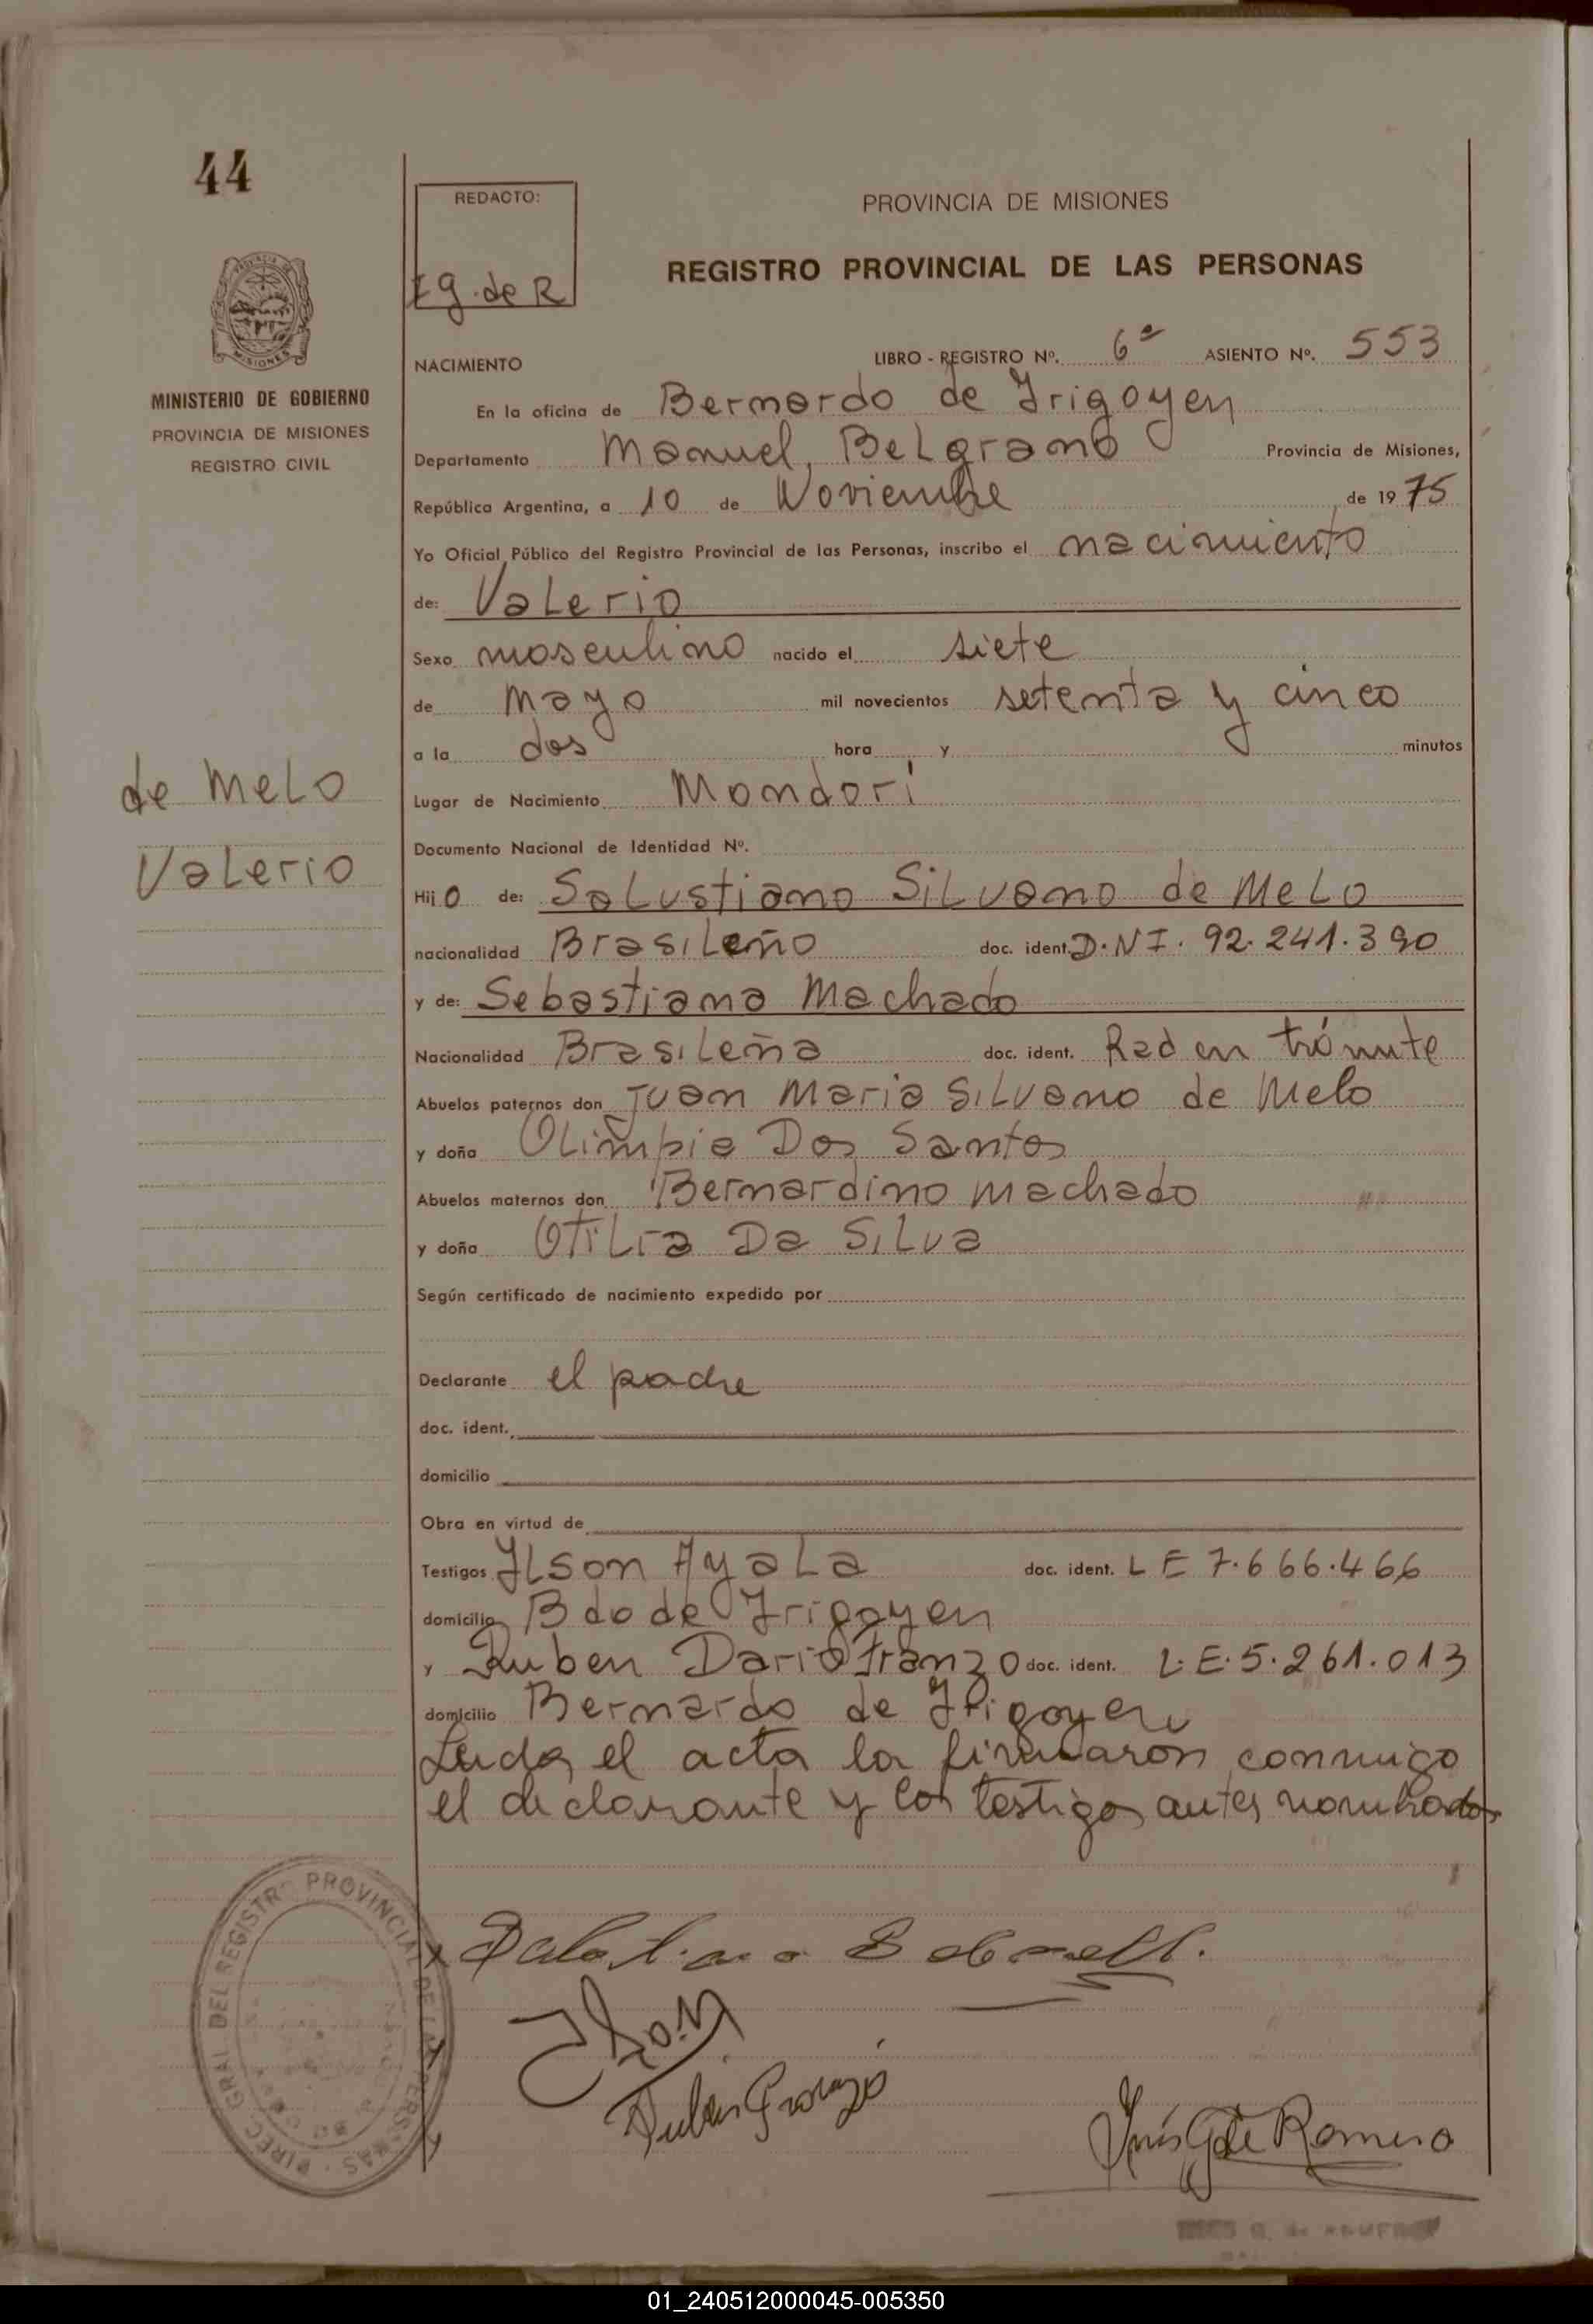 44
REDACTO:
Ig. de R
PROVINCIA DE MISIONES
REGISTRO PROVINCIAL DE LAS PERSONAS
MISIONES
MINISTERIO DE GOBIERNO
PROVINCIA DE MISIONES
REGISTRO CIVIL
NACIMIENTO
LIBRO - REGISTRO Nº. 6º ASIENTO Nº. 553
En la oficina de Bernardo de Irigoyen
Departamento Manuel Belgrano Provincia de Misiones,
República Argentina, a 10 de Noviembre de 1975
Yo Oficial Público del Registro Provincial de las Personas, inscribo el nacimiento
de: Valerio
Sexo masculino nacido el siete
de mayo mil novecientos setenta y cinco
a la dos hora y minutos
Lugar de Nacimiento Mondori
de Melo
Valerio
Documento Nacional de Identidad Nº.
Hijo de: Salustiano Silvano de Melo
nacionalidad Brasileño doc. ident. D.N I. 92.241.390
y de: Sebastiana Machado
Nacionalidad Brasileña doc. ident. Rad en trámite
Abuelos paternos don Juan Maria Silvano de Melo
y doña Olimpia Dos Santos
Abuelos maternos don Bernardino Machado
y doña Otilia Da Silva
Según certificado de nacimiento expedido por
Declarante el padre
doc. ident.
domicilio
Obra en virtud de
Testigos Ilson Ayala doc. ident. L E 7.666.466
domicilio Bdo de Irigoyen
y Ruben Dario Franzo doc. ident. L.E.5.261.013
domicilio Bernardo de Irigoyen
Leida el acta la firmaron conmigo
el declarante y los testigos antes nombrados
DIREC. GRAL. DEL REGISTRO PROVINCIAL DE LAS PERSONAS
Ruben Franzo
Inés G de Romero
01_240512000045-005350